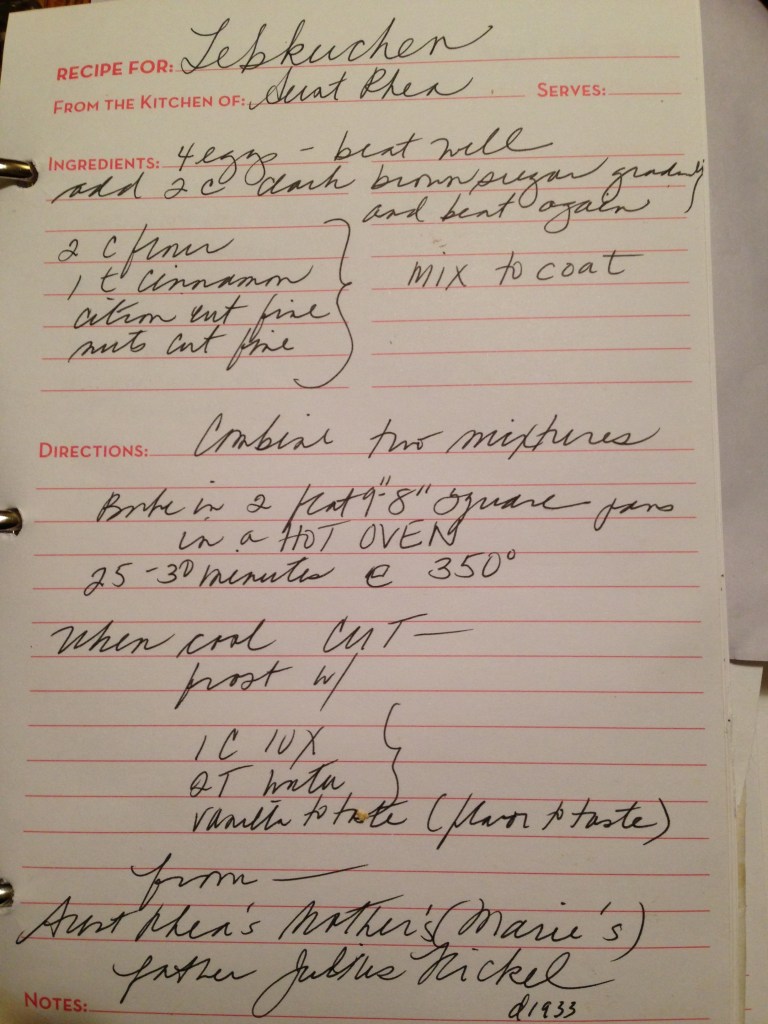 RECIPE FOR: Lebkuchen
FROM THE KITCHEN OF: Aunt Rhea SERVES:
INGREDIENTS: 4 eggs - beat well
add 2 c dark brown sugar gradually
and beat again
2 c flour
1 t cinnamon
mix to coat
citron cut fine
nuts cut fine
DIRECTIONS: Combine two mixtures
Bake in 2 flat 9"-8" square pans
in a HOT OVEN
25-30 minutes @ 350°
When cool CUT —
frost w/
1 C 10X
2T water
vanilla to taste (flavor to taste)
from —
Aunt Rhea's Mother's (Marie's)
father Julius Nickel
d1933
NOTES: